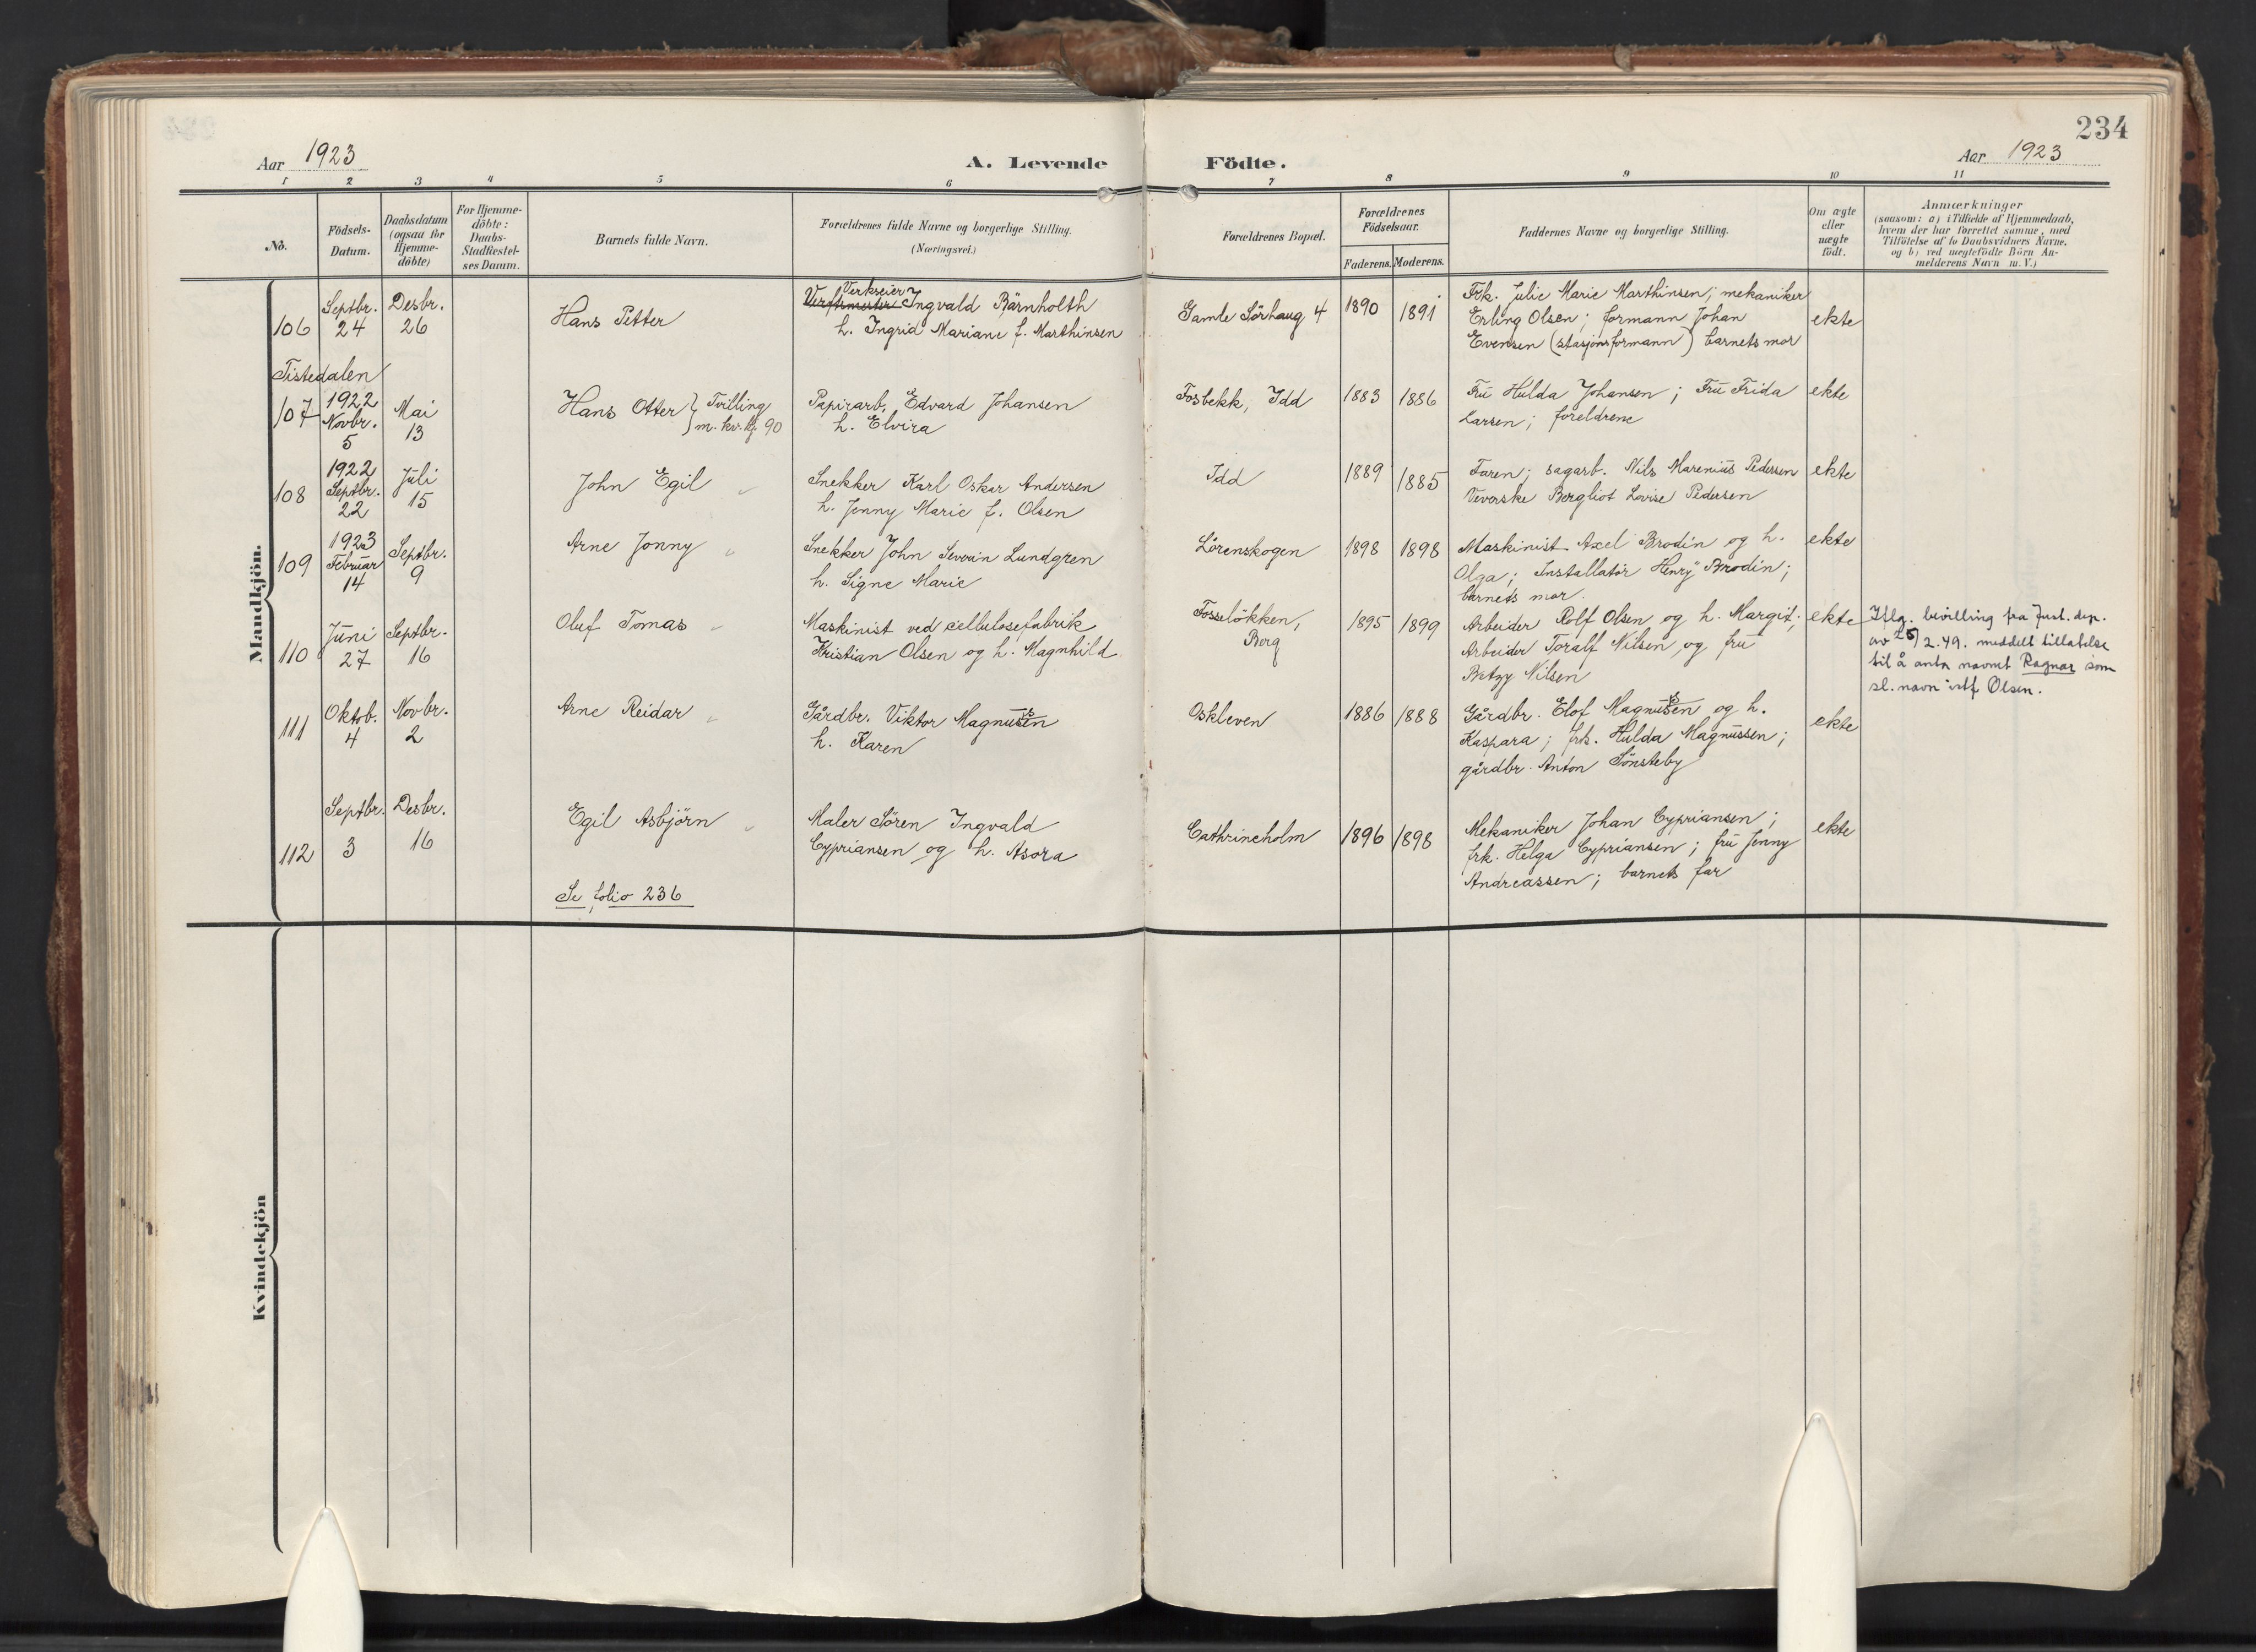 234
Aar 1923
A. Levende Födte.
Aar 1923
1 2 3 4 5 6 7 8 9 10 11
No.
Födsels-
Datum.
Daabsdatum
(ogsaa for
Hjemme-
döbte)
For Hjemme-
döbte:
Daabs-
Stadfæstel-
ses Datum.
Barnets fulde Navn.
Forældrenes fulde Navne og borgerlige Stilling.
(Næringsvei.)
Forældrenes Bopæl.
Forældrenes
Födselsaar.
Faderens. Moderens.
Faddernes Navne og borgerlige Stilling.
Om ægte
eller
uægte
födt.
Anmærkninger
(saasom: a) i Tilfælde af Hjemmedaab,
hvem der har forrettet samme, med
Tilföielse af to Daabsvidners Navne.
og b) ved uegtefödte Börn An-
melderens Navn m. V.)
Mandkjön.
106
Septbr.
24
Desbr.
26
Hans Petter
Verkseier
Verftsmester Ingvald Bärnholth
h. Ingrid Mariane f. Marthinsen
Gamle Sörhaug 4
1890 1891
Frk. Julie Marie Marthinsen; mekaniker
Erling Olsen; formann Johan
Evensen (stasjonsformann) barnets mor
ekte
Tistedalen
107
1922
Novbr.
5
Mai
13
Hans Otter } Tvilling
m. kv.kj. 90
Papirarb. Edvard Johansen
h. Elvira
Fosbekk, Idd
1883 1886
Fru Hulda Johansen; Fru Frida
Larsen; foreldrene
ekte
108
1922
Septbr.
22
Juli
15
John Egil
Snekker Karl Oskar Andersen
h. Jenny Marie f. Olsen
Idd
1889 1885
Faren; sagarb. Nils Marenius Pedersen
Veverske Bergliot Lovise Pedersen
ekte
109
1923
Februar
14
Septbr.
9
Arne Jonny
Snekker John Severin Lundgren
h. Signe Marie
Lörenskogen
1898 1898
Maskinist Axel Brodin og h.
Olga; Installatör Henry Brodin;
barnets mor.
ekte
110
Juni
27
Septbr.
16
Oluf Tomas
Maskinist ved cellulosefabrik
Kristian Olsen og h. Magnhild
Fosselökken,
Berg
1895 1899
Arbeider Rolf Olsen og h. Margit;
Arbeider Toralf Nilsen og fru
Betzy Nilsen
ekte
Iflg. bevilling fra Just.dep.
av 25/2.49. meddelt tillatelse
til å anta navnet Ragnar som
sl.navn istf Olsen.
111
Oktob.
4
Novbr.
2
Arne Reidar
Gårdbr. Viktor Magnussen
h. Karen
Oskleven
1886 1888
Gårdbr. Elof Magnussen og h.
Kaspara; frk. Hulda Magnussen;
gårdbr. Anton Sönsteby
ekte
112
Septbr.
3
Desbr.
16
Egil Asbjörn
Maler Sören Ingvald
Cypriansen og h. Asora
Cathrineholm
1896 1898
Mekaniker Johan Cypriansen;
frk. Helga Cypriansen; fru Jenny
Andreassen; barnets far
ekte
Se folio 236
Kvindekjön